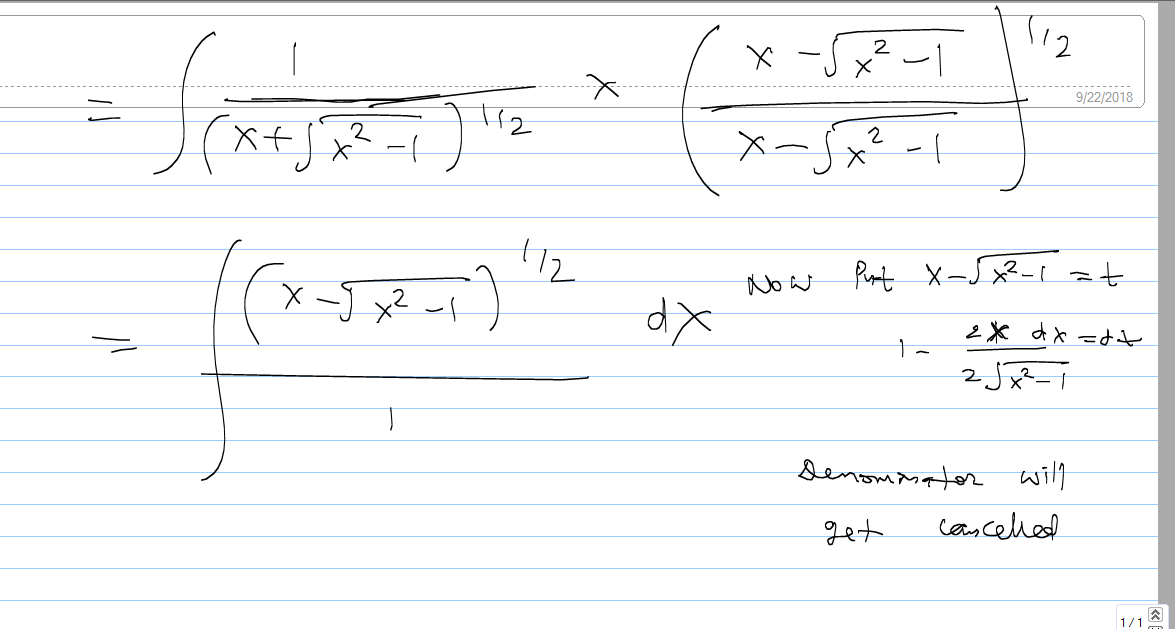 = ∫ 1/(x+√(x²-1))^1/2 × ((x-√(x²-1))/(x-√(x²-1)))^1/2
9/22/2018
= ∫ (x-√(x²-1))^1/2/1 dx
Now Put x-√(x²-1) = t
1 - 2x dx/2√(x²-1) = dt
Denominator will
get cancelled
1/1